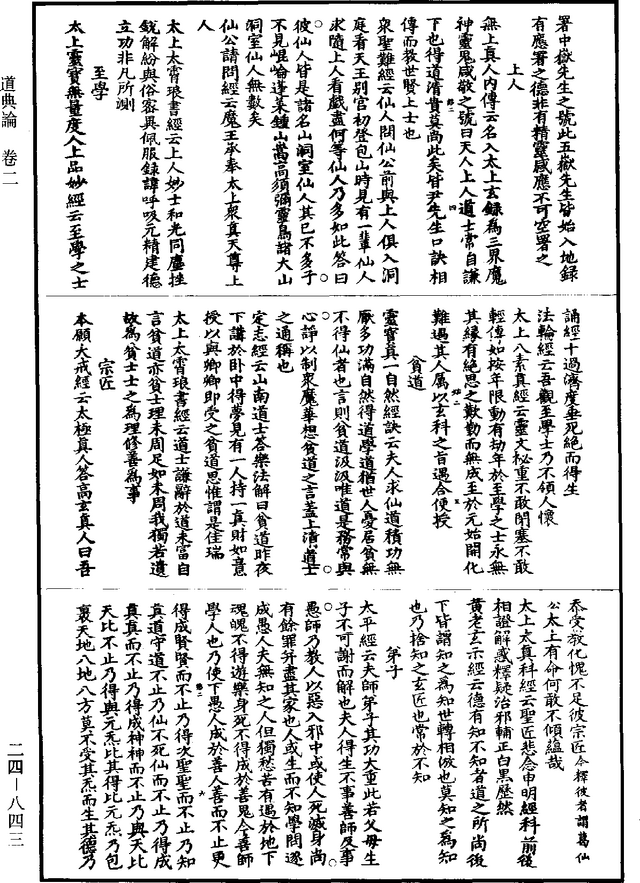 署中嶽先生之號此五嶽先生皆始入地録
有應署之德非有精靈感應不可空署之
上人
無上真人内傳云名入太上玄録為三界魔
神靈鬼咸敬之號曰天人上人道士常自謙
下也得道清貴莫尚此矣皆尹先生口訣相
傳而教世賢上士也
衆聖難經云仙人問仙公前與上人俱入洞
庭看天王别宫初登包山時見有一輩仙人
求隨上人看戲盡何等仙人乃多如此答曰
彼仙人皆是諸名山洞室仙人其已不多子
不見崐崘蓬萊鍾山嵩高須彌靈鳥諸大山
洞室仙人無數矣
仙公請問經云魔王承奉太上衆真天尊上
人
太上太霄琅書經云上人妙士和光同塵挫
銳解紛與俗客異佩服録諱呼吸元精建德
立功非凡所測
至學
太上靈寳無量度人上品妙經云至學之士
誦經十過濟度垂死絶而得生
法輪經云吾觀至學士乃不領人懷
太上八素真經云靈文秘重不敢閉塞不敢
輕傳如按年限動有劫年於至學之士永無
其緣有絶思之歎勤而無成至於元始開化
難遇其人属以玄科之旨遇合便授
貧道
靈寳真一自然經訣云夫人求仙道積功無
厭多功滿自然得道學道猶世人憂居貧無
不得仙者也言則貧道汲汲唯道是務常與
心諍以制衆魔華想貧道之言蓋上清道士
之通稱也
定志經云山南道士答樂法解曰貧道昨夜
下講於卧中得夢見有一人持一真財如意
授以與卿卿即受之貧道思惟謂是佳瑞
太上太霄琅書經云道士謙辭於道未富自
言貧道亦貧士理未周足如未周我獨若遺
故為貧士士之為理修善為事
宗匠
本願大戒經云太極真人答高玄真人曰吾
忝受教化愧不足彼宗匠今釋彼者謂葛仙
公太上有命何敢不傾蘊哉
太上太真科經云聖匠悲念申明經科前後
相證解惑釋疑治邪輔正白黑歷然
黄老玄示經云德有知不知者道之所尚後
下皆謂知之為知世轉相倣也莫知之為知
也乃捨知之玄匠也常於不知
弟子
太平經云夫師弟子其功大重此若父母生
子不可謝而解也夫人得生不事善師反事
愚師乃教人以惡入邪中或使人死滅身尚
有餘罪并盡其家也人或生而不知學問遂
成愚人夫無知之人但獨愁苦有過於地下
魂魄不得遊樂身死不得成於善鬼今善師
學人也乃使下愚人成於善人善而不止更
得成賢賢而不止乃得次聖聖而不止乃知
真道守道不止乃仙不死仙而不止乃得成
真真而不止乃得成神神而不止乃與天比
天比不止乃得與元炁比其得比元炁乃包
裹天地八地八方莫不受其炁而生其德乃
道典論　卷二
二四—八四三